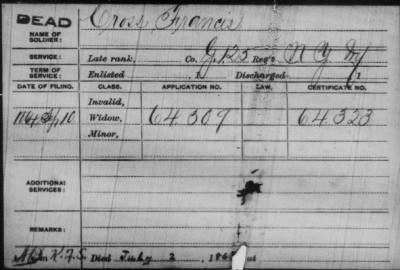 DEAD Cross Francis
NAME OF SOLDIER:
SERVICE: Late rank, Co. G, 125 Reg't N Y
TERM OF SERVICE: Enlisted , Discharged , 1
DATE OF FILING. CLASS. APPLICATION NO. LAW. CERTIFICATE NO.
Invalid,
10 Widow, 64309 64323
Minor,
ADDITIONAL SERVICES:
REMARKS:
Died July 2, 186